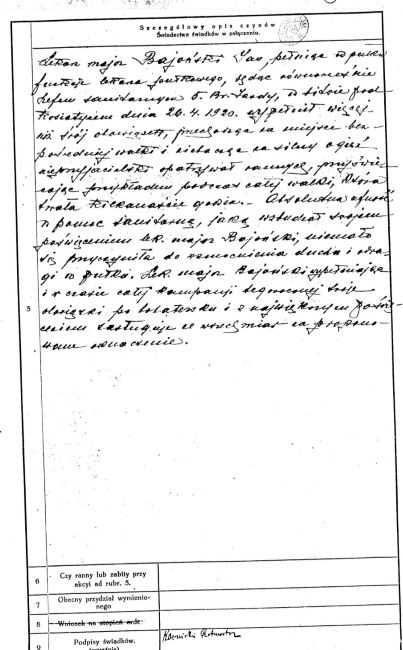 Szczegółowy opis czynów
Świadectwa świadków w załączeniu.
Lekarz major Bajoński Jan, pełniąc w pułku
funkcje lekarza pułkowego, będąc równocześnie
szefem sanitarnym 5. Br. Jazdy, w bitwie pod
dnia 26.4.1920. wypełnił więcej
niż swój obowiązek, na miejsce bez-
pośredniej walki i nie bacząc na silny ogień
nieprzyjacielski opatrywał rannych, przyświe-
cając przykładem podczas całej walki, która
trwała kilkanaście godzin. Absolutna ufność
w pomoc sanitarną, jaką wzbudzał swojem
poświęceniem lek. major Bajoński, niemało
się przyczyniła do wzmocnienia ducha i odwa-
gi w pułku. Lek. major Bajoński wypełniając
i w czasie całej kampanji tegorocznej swoje
obowiązki po bohatersku i z największym poświę-
ceniem zasługuje ze wszech miar na propono-
wane odznaczenie.
5
6 Czy ranny lub zabity przy
akcyi ad rubr. 5.
7 Obecny przydział wymienio-
nego
8 Wniosek na stopień orde-
9 Podpisy świadków.
Rotmistrz